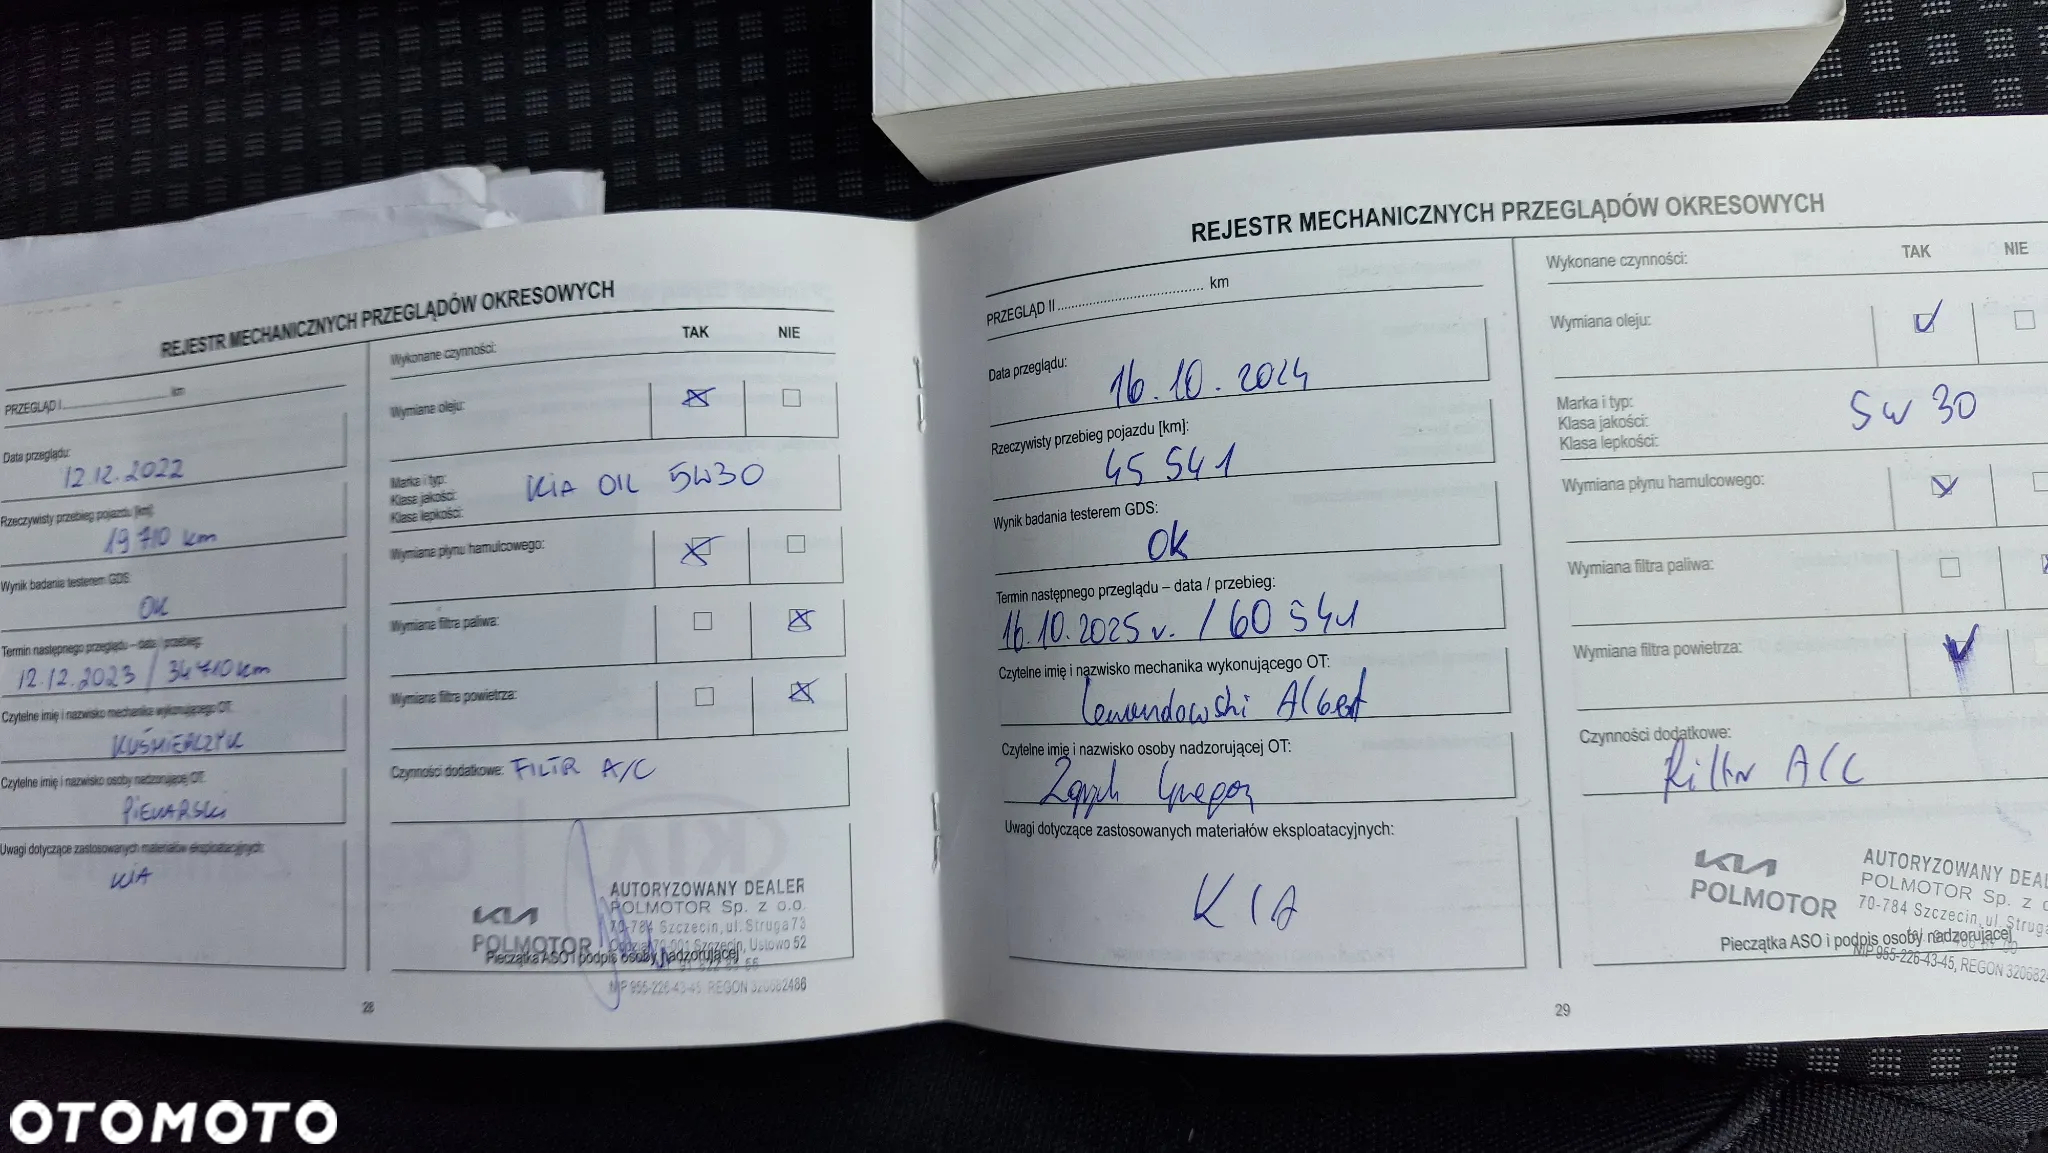 REJESTR MECHANICZNYCH PRZEGLĄDÓW OKRESOWYCH
PRZEGLĄD I ........ km
Data przeglądu:
12.12.2022
Rzeczywisty przebieg pojazdu [km]:
19 710 km
Wynik badania testerem GDS:
OK
Termin następnego przeglądu – data / przebieg:
12.12.2023 / 34 710 km
Czytelne imię i nazwisko mechanika wykonującego OT:
KUŚMIERCZYK
Czytelne imię i nazwisko osoby nadzorującej OT:
PIEKARSKI
Uwagi dotyczące zastosowanych materiałów eksploatacyjnych:
KIA
Wykonane czynności: TAK NIE
Wymiana oleju:
Marka i typ:
Klasa jakości:
Klasa lepkości:
KIA OIL 5W30
Wymiana płynu hamulcowego:
Wymiana filtra paliwa:
Wymiana filtra powietrza:
Czynności dodatkowe: FILTR A/C
KIA
POLMOTOR
AUTORYZOWANY DEALER
POLMOTOR Sp. z o.o.
70-784 Szczecin, ul. Struga 73
Oddział 70-001 Szczecin, Ustowo 52
Pieczątka ASO i podpis osoby nadzorującej
NIP 955-226-43-45, REGON 320682486
28
REJESTR MECHANICZNYCH PRZEGLĄDÓW OKRESOWYCH
PRZEGLĄD II ........ km
Data przeglądu:
16.10.2024
Rzeczywisty przebieg pojazdu [km]:
45 541
Wynik badania testerem GDS:
OK
Termin następnego przeglądu – data / przebieg:
16.10.2025 r. / 60 541
Czytelne imię i nazwisko mechanika wykonującego OT:
Lewandowski Albert
Czytelne imię i nazwisko osoby nadzorującej OT:
Uwagi dotyczące zastosowanych materiałów eksploatacyjnych:
KIA
Wykonane czynności: TAK NIE
Wymiana oleju:
Marka i typ:
Klasa jakości:
Klasa lepkości:
5W30
Wymiana płynu hamulcowego:
Wymiana filtra paliwa:
Wymiana filtra powietrza:
Czynności dodatkowe:
Filtr A/C
KIA
POLMOTOR
AUTORYZOWANY DEAL
POLMOTOR Sp. z o
70-784 Szczecin, ul. Struga
Pieczątka ASO i podpis osoby nadzorującej
NIP 955-226-43-45, REGON 32068
29
OTOMOTO